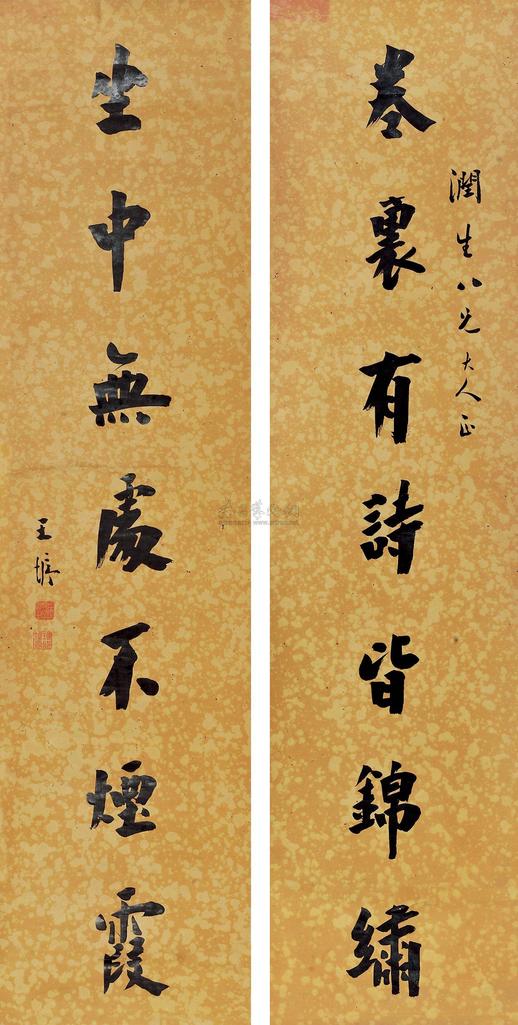 卷裏有詩皆錦繡
潤生八兄大人正
坐中無處不煙霞
王堉